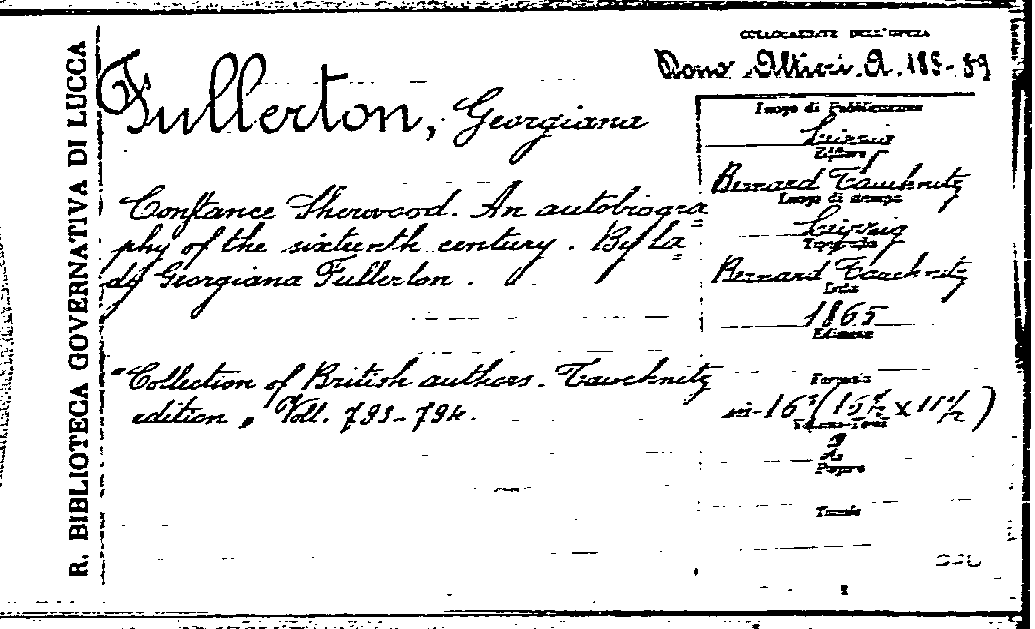 R. BIBLIOTECA GOVERNATIVA DI LUCCA
COLLOCAZIONE DELL'OPERA
Dono Altieri. A. 188-89
Fullerton, Georgiana
Constance Sherwood. An autobiogra=
phy of the sixteenth century. By La=
dy Georgiana Fullerton.
"Collection of British authors. Tauchnitz
edition" Voll. 793-794.
Luogo di Pubblicazione
Leipzig
Editore
Bernard Tauchnitz
Luogo di stampa
Leipzig
Tipografia
Bernard Tauchnitz
Data
1865
Edizione
Formato
in-16°
2
Pagine
Tavole